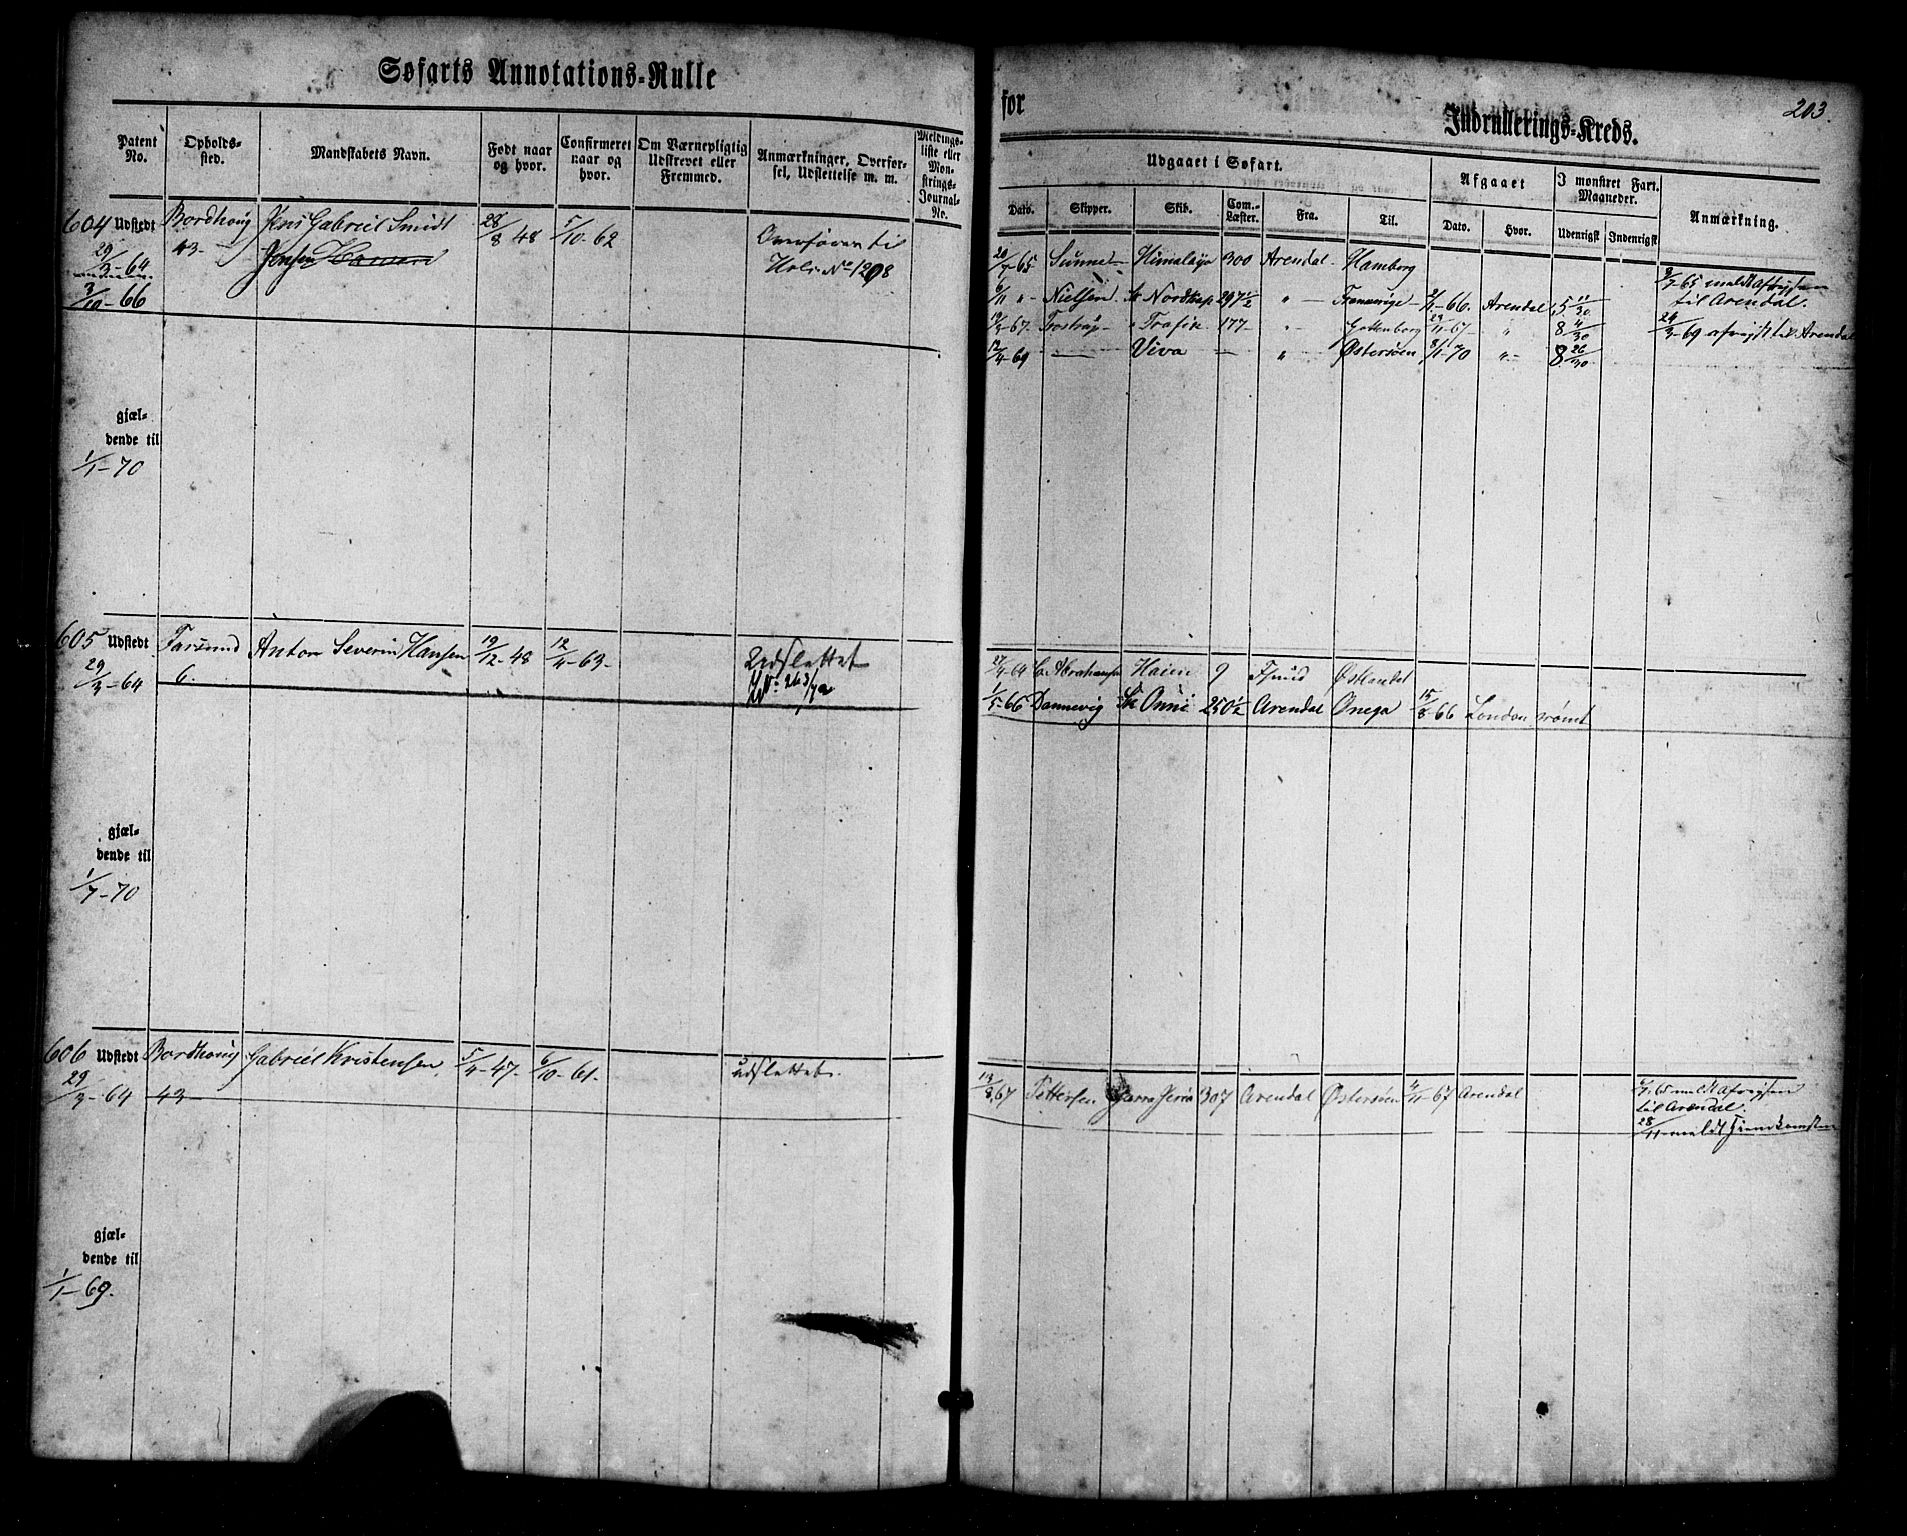 Søfarts Annotations-Rulle
for
Indrullerings-Kreds.
203.
Patent No.
Opholds-sted.
Mandskabets Navn.
Født naar og hvor.
Confirmeret naar og hvor.
Om Værnepligtig Udskrevet eller Fremmed.
Anmærkninger, Overførsel, Udslettelse m. m.
Meldingsliste eller Monstrings-Journal-No.
Udgaaet i Søfart.
Afgaaet
I monstret Fart. Maaneder.
Anmærkning.
Dato.
Skipper.
Skib.
Com.-Læster.
Fra.
Til.
Dato.
Hvor.
Udenrigst
Indenrigst
604 Udstedt Bordhoug Jens Gabriel Smidt 28/8 48 5/10-62 Overføren til
29/3-64 43- Jensen Hol: No 1208
3/10-66
20/7-65 Himalaya 300 Arendal Hamborg
6/11 " Nielsen Sk Nordkap 297 1/2 " 2/11-66. Arendal 5 11/30
19/3-67. 177- " Gottenborg 23/11-67 " 8 4/30
12/4-69 Viva " Østersøen 8/1-70 " 8 26/30
2/7-65 meldt afreysen
til Arendal.
24/3-69 afreyst til Arendal
gjæl-
dende til
1/1-70
605 Udstedt Farsund Anton Severin Hansen 19/12-48 12/4-63- Udslettet
29/3-64 6. 263/72
27/4-64 Abrahamsen Haien 9 Fsund Østlandet
1/5-66 Dannevig Sk 250 1/2 Arendal Onega 15/8-66 London rømt
gjæl-
dende til
1/7-70
606 Udstedt Bordhoug Gabriel Kristensen 5/4-47- 6/10-61- udslettet.
29/3-64 43-
13/8 67 Pettersen 307 Arendal Østersøen 67 Arendal
65 meldt afreysen
til Arendal.
28/11 meldt Hjemkomsten
gjæl-
dende til
1/1-69.